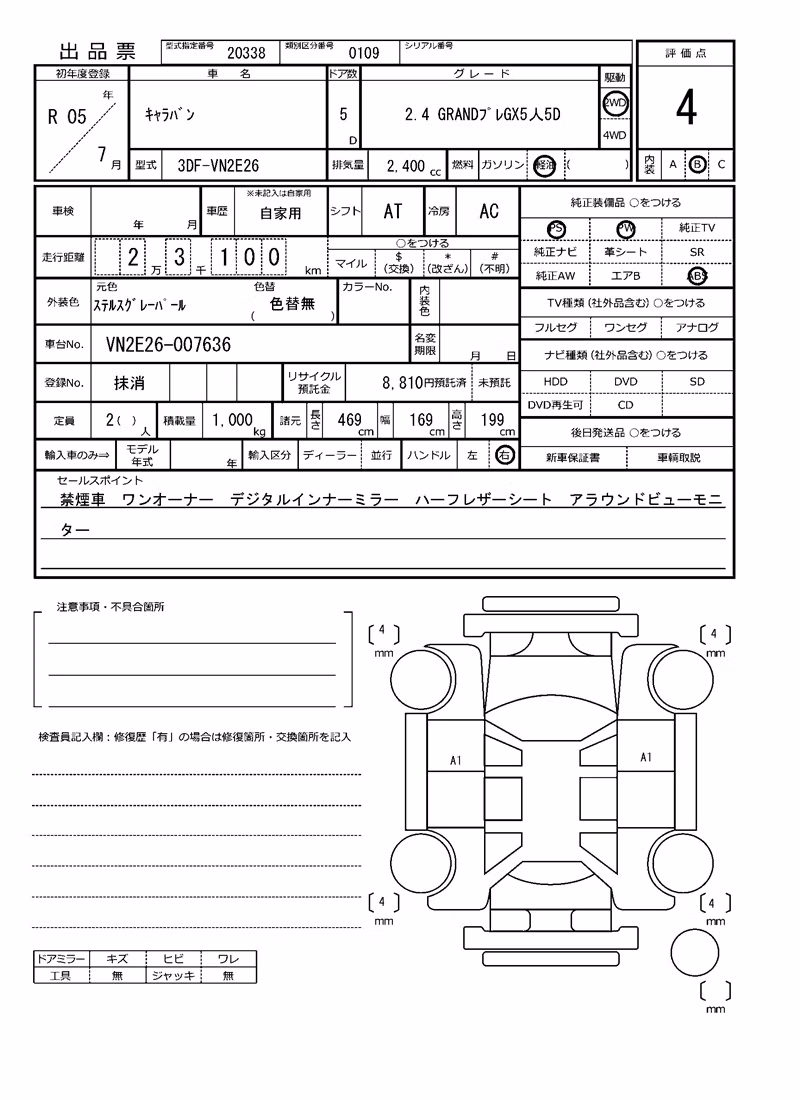 出品票 型式指定番号 20338 類別区分番号 0109 シリアル番号
評価点
初年度登録 車名 ドア数 グレード 駆動
R 05 年 7 月 ｷｬﾗﾊﾞﾝ 5 D 2.4 GRANDﾌﾟﾚGX5人5D 2WD 4WD
4
型式 3DF-VN2E26 排気量 2,400 cc 燃料 ガソリン 軽油 ( )
内装 A B C
車検 年 月 車歴 ※未記入は自家用 自家用 シフト AT 冷房 AC
走行距離 2 万 3 千 1 0 0 km
○をつける
マイル $ (交換) * (改ざん) # (不明)
外装色 元色 ｽﾃﾙｽｸﾞﾚｰﾊﾟｰﾙ 色替 ( 色替無 ) カラーNo. 内装色
車台No. VN2E26-007636 名変期限 月 日
登録No. 抹消 リサイクル預託金 8,810円預託済 未預託
定員 2( ) 人 積載量 1,000 kg 諸元 長さ 469 cm 幅 169 cm 高さ 199 cm
輸入車のみ⇒ モデル年式 年 輸入区分 ディーラー 並行 ハンドル 左 右
純正装備品 ○をつける
PS PW 純正TV
純正ナビ 革シート SR
純正AW エアB ABS
TV種類(社外品含む) ○をつける
フルセグ ワンセグ アナログ
ナビ種類(社外品含む) ○をつける
HDD DVD SD
DVD再生可 CD
後日発送品 ○をつける
新車保証書 車輌取説
セールスポイント
禁煙車 ワンオーナー デジタルインナーミラー ハーフレザーシート アラウンドビューモニ
ター
注意事項・不具合箇所
検査員記入欄：修復歴「有」の場合は修復箇所・交換箇所を記入
ドアミラー キズ ヒビ ワレ
工具 無 ジャッキ 無
[ 4 ] mm
[ 4 ] mm
A1
A1
[ 4 ] mm
[ 4 ] mm
[ ] mm